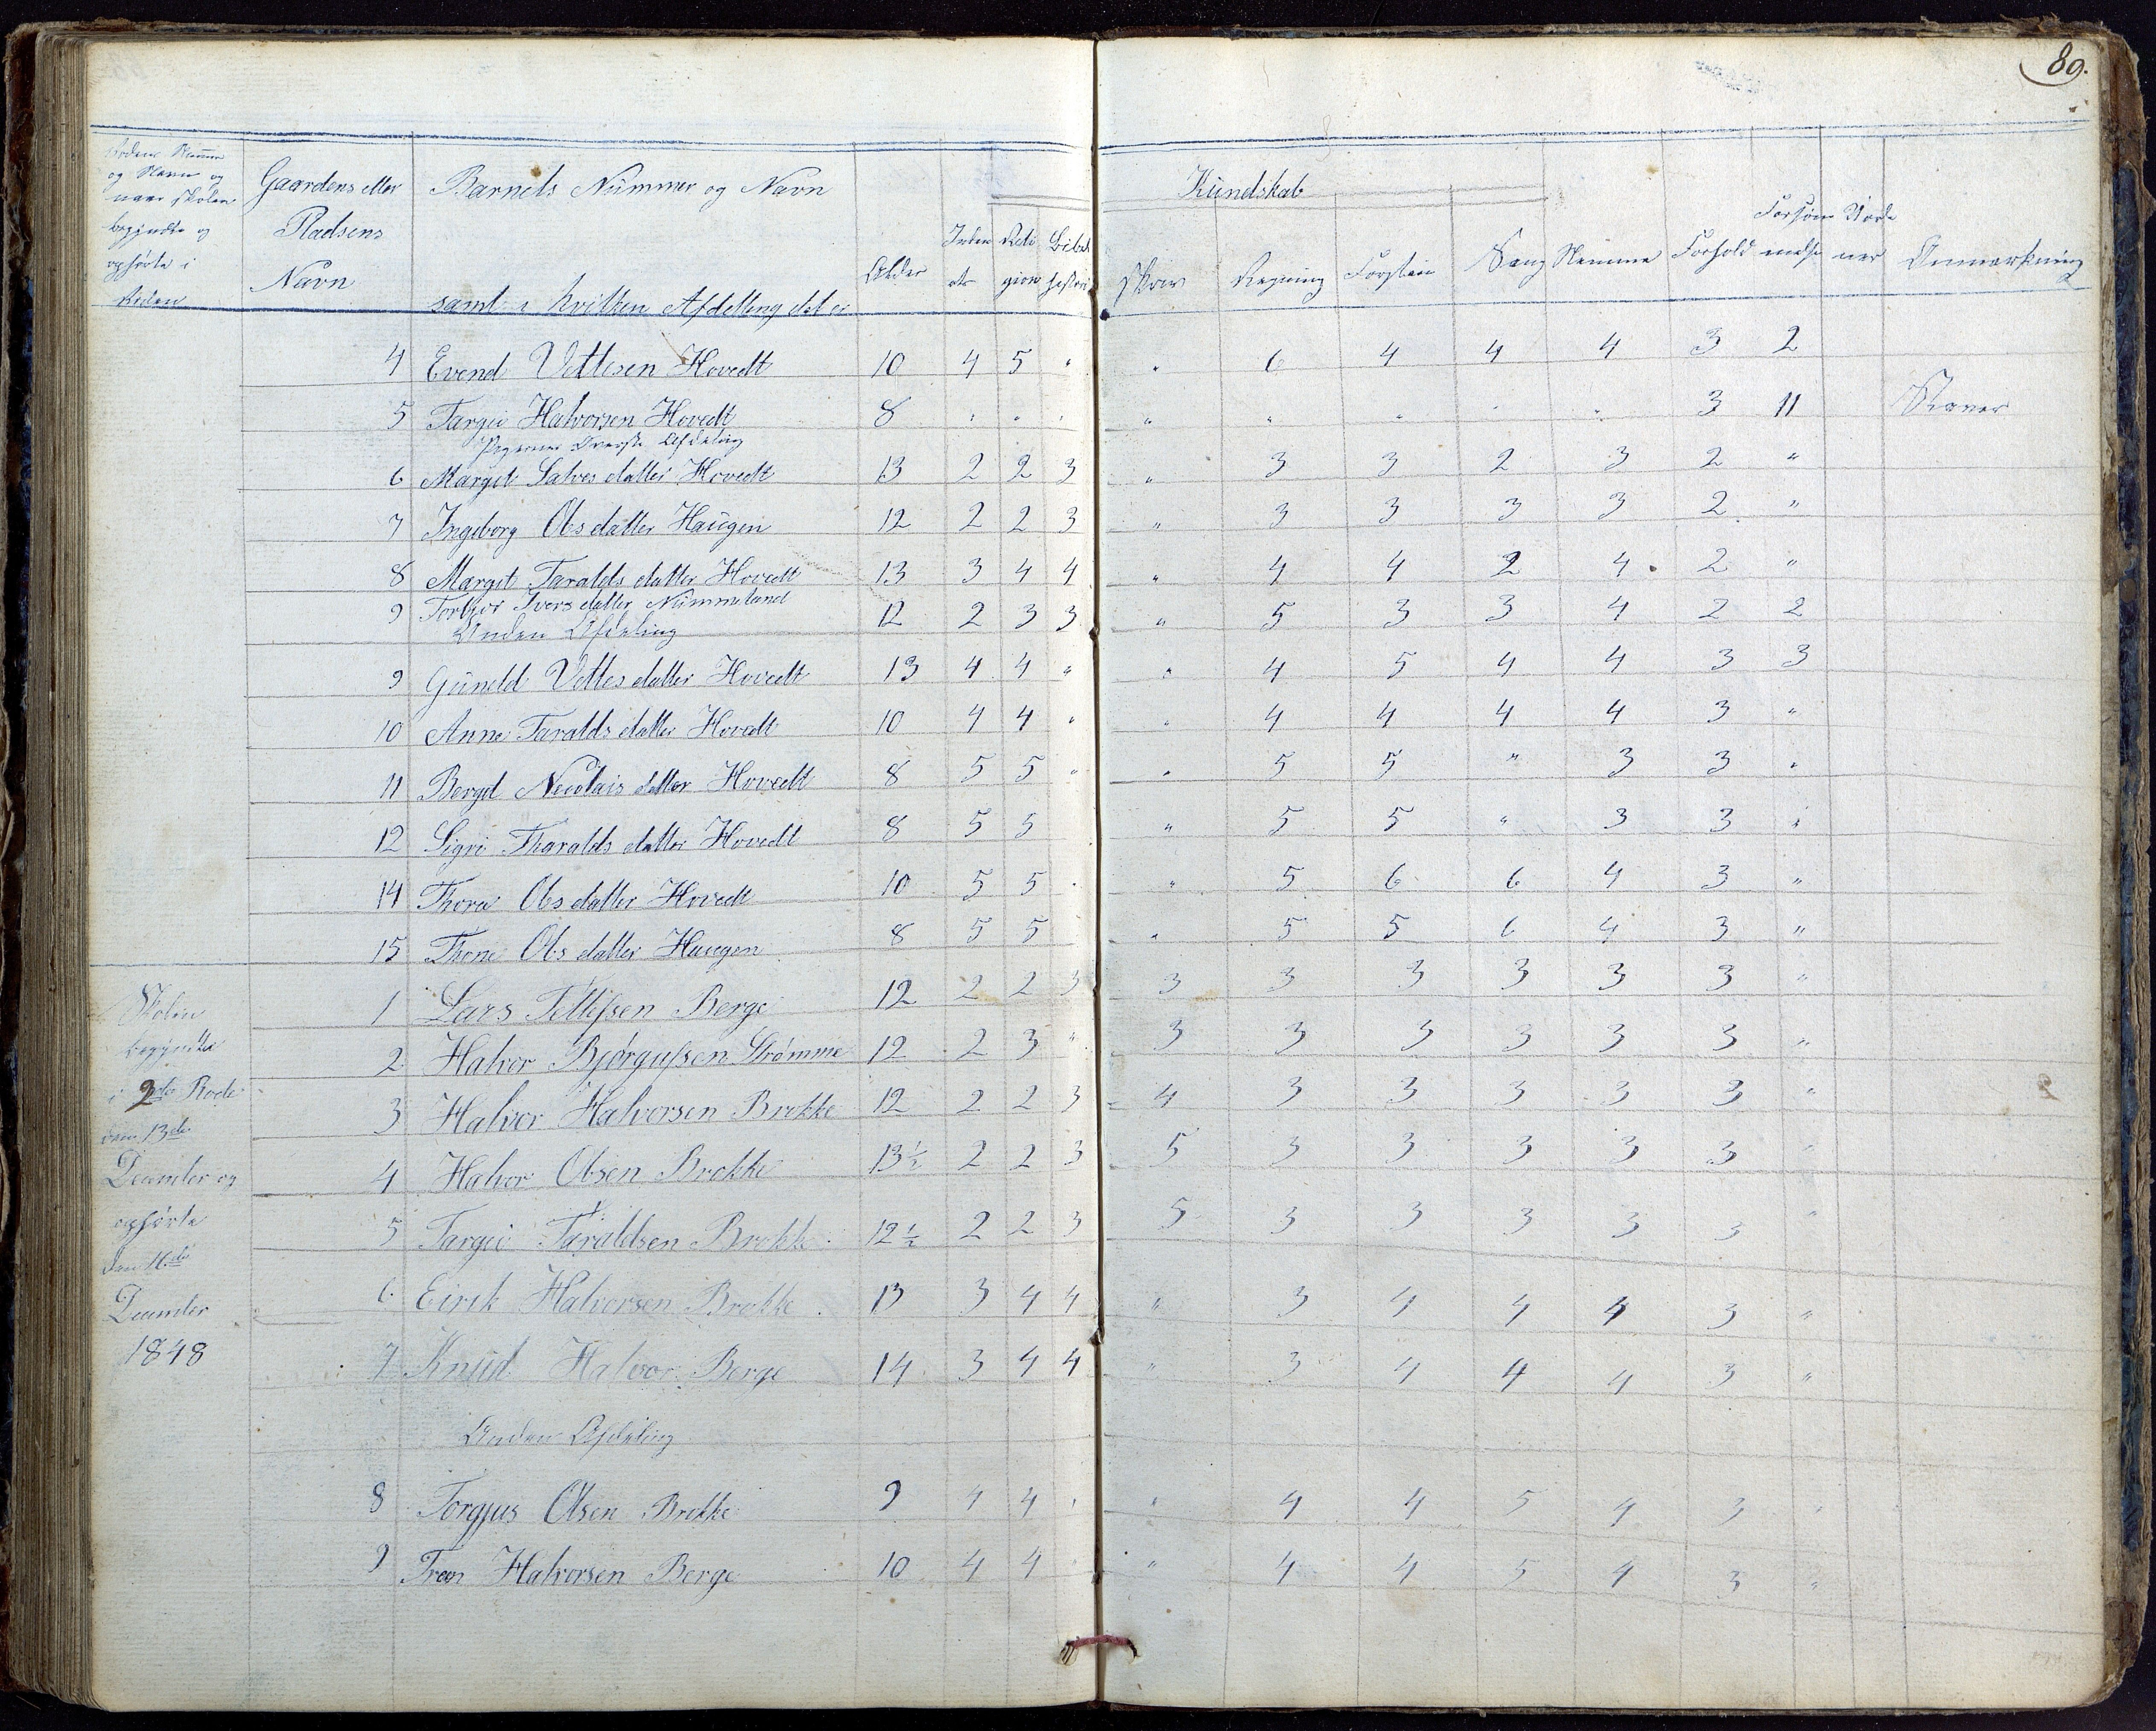 89.
Rodens Numer
og Navn og
naar Skolen
begyndte og
ophørte i
Roden
Gaardens eller
Pladsens
Navn
Barnets Nummer og Navn
samt i hvilken Afdelling det er
Alder
Inden ad
Reli gion
Bibel histori
Kundskab
Skriv
Regning
Forstan
Sang
Nemme
Forhold
Forsøm melse
Anmærkning
4 Evend Vettesen Hovedt 10 4 5 " " 6 4 4 4 3 2
5 Targei Halvorsen Hovedt 8 " " " " " " " " 3 11
Pigernes Øverste Afdeling
6 Margit Salves datter Hovedt 13 2 2 3 " 3 3 2 3 2 "
7 Ingeborg Ols datter Haugen 12 2 2 3 " 3 3 3 3 2 "
8 Margit Taralds datter Hovedt 13 3 4 4 " 4 4 2 4 2 "
9 Torbjør Ivers datter Nummeland 12 2 3 3 " 5 3 3 4 2 2
Anden Afdeling
9 Guneld Vettes datter Hovedt 13 4 4 " " 4 5 4 4 3 3
10 Anne Taralds datter Hovedt 10 4 4 " " 4 4 4 4 3 "
11 Bergit Nicolais datter Hovedt 8 5 5 " " 5 5 " 3 3 "
12 Sigri Tharalds datter Hovedt 8 5 5 " 5 5 " 3 3 "
14 Thora Ols datter Hovedt 10 5 5 " " 5 6 6 4 3 "
15 Thone Ols datter Haugen 8 5 5 " 5 5 6 4 3 "
Skolen
begyndte
i 2de Rode
den 13de
Decmber og
ophørte
den 16de
Decmber
1848
1 Lars Tellefsen Berge 12 2 2 3 3 3 3 3 3 3 "
2 Halvor Bjørgufsen Strømme 12 2 3 " 3 3 3 3 3 3 "
3 Halvor Halvorsen Brokke 12 2 2 3 4 3 3 3 3 3 "
4 Halvor Olsen Brokke 13½ 2 2 3 5 3 3 3 3 3 "
5 Targei Taraldsen Brokke 12½ 2 2 3 5 3 3 3 3 3 "
6 Eirik Halvorsen Brokke 13 3 4 4 " 3 4 4 4 3 "
7 Knud Halvor Berge 14 3 4 4 " 3 4 4 4 3 "
Anden Afdeling
8 Torgjus Olsen Brokke 9 4 4 " " 4 4 5 4 3 "
9 Tron Halvorsen Berge 10 4 4 " " 4 4 5 4 3 "